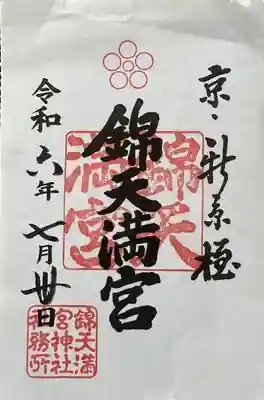 京・新京極
錦天満宮
錦天満宮
令和六年七月卅日
錦天満
宮神社
社務所